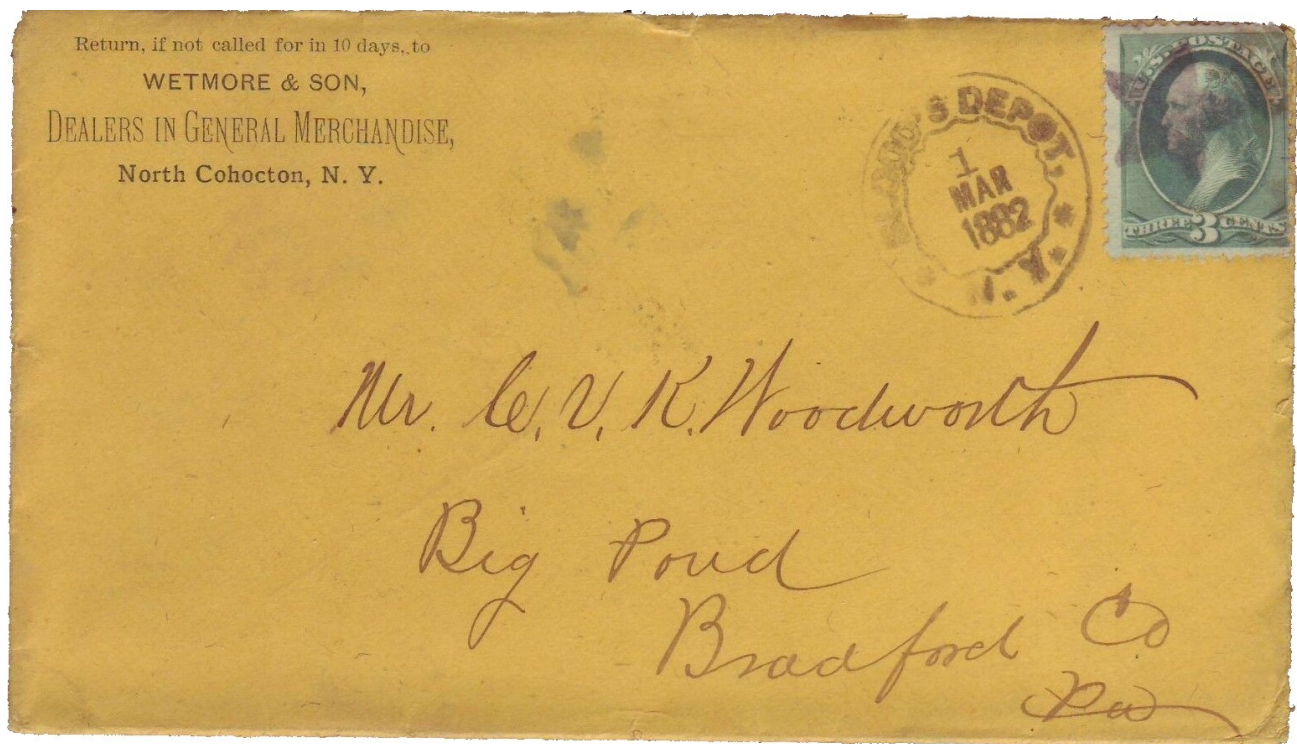 Return, if not called for in 10 days, to
WETMORE & SON,
DEALERS IN GENERAL MERCHANDISE,
North Cohocton, N. Y.
BLOOD'S DEPOT,
N. Y.
1
MAR
1882
U.S. POSTAGE
THREE 3 CENTS
Mr. C. V. K. Woodworth
Big Pond
Bradford Co
Pa